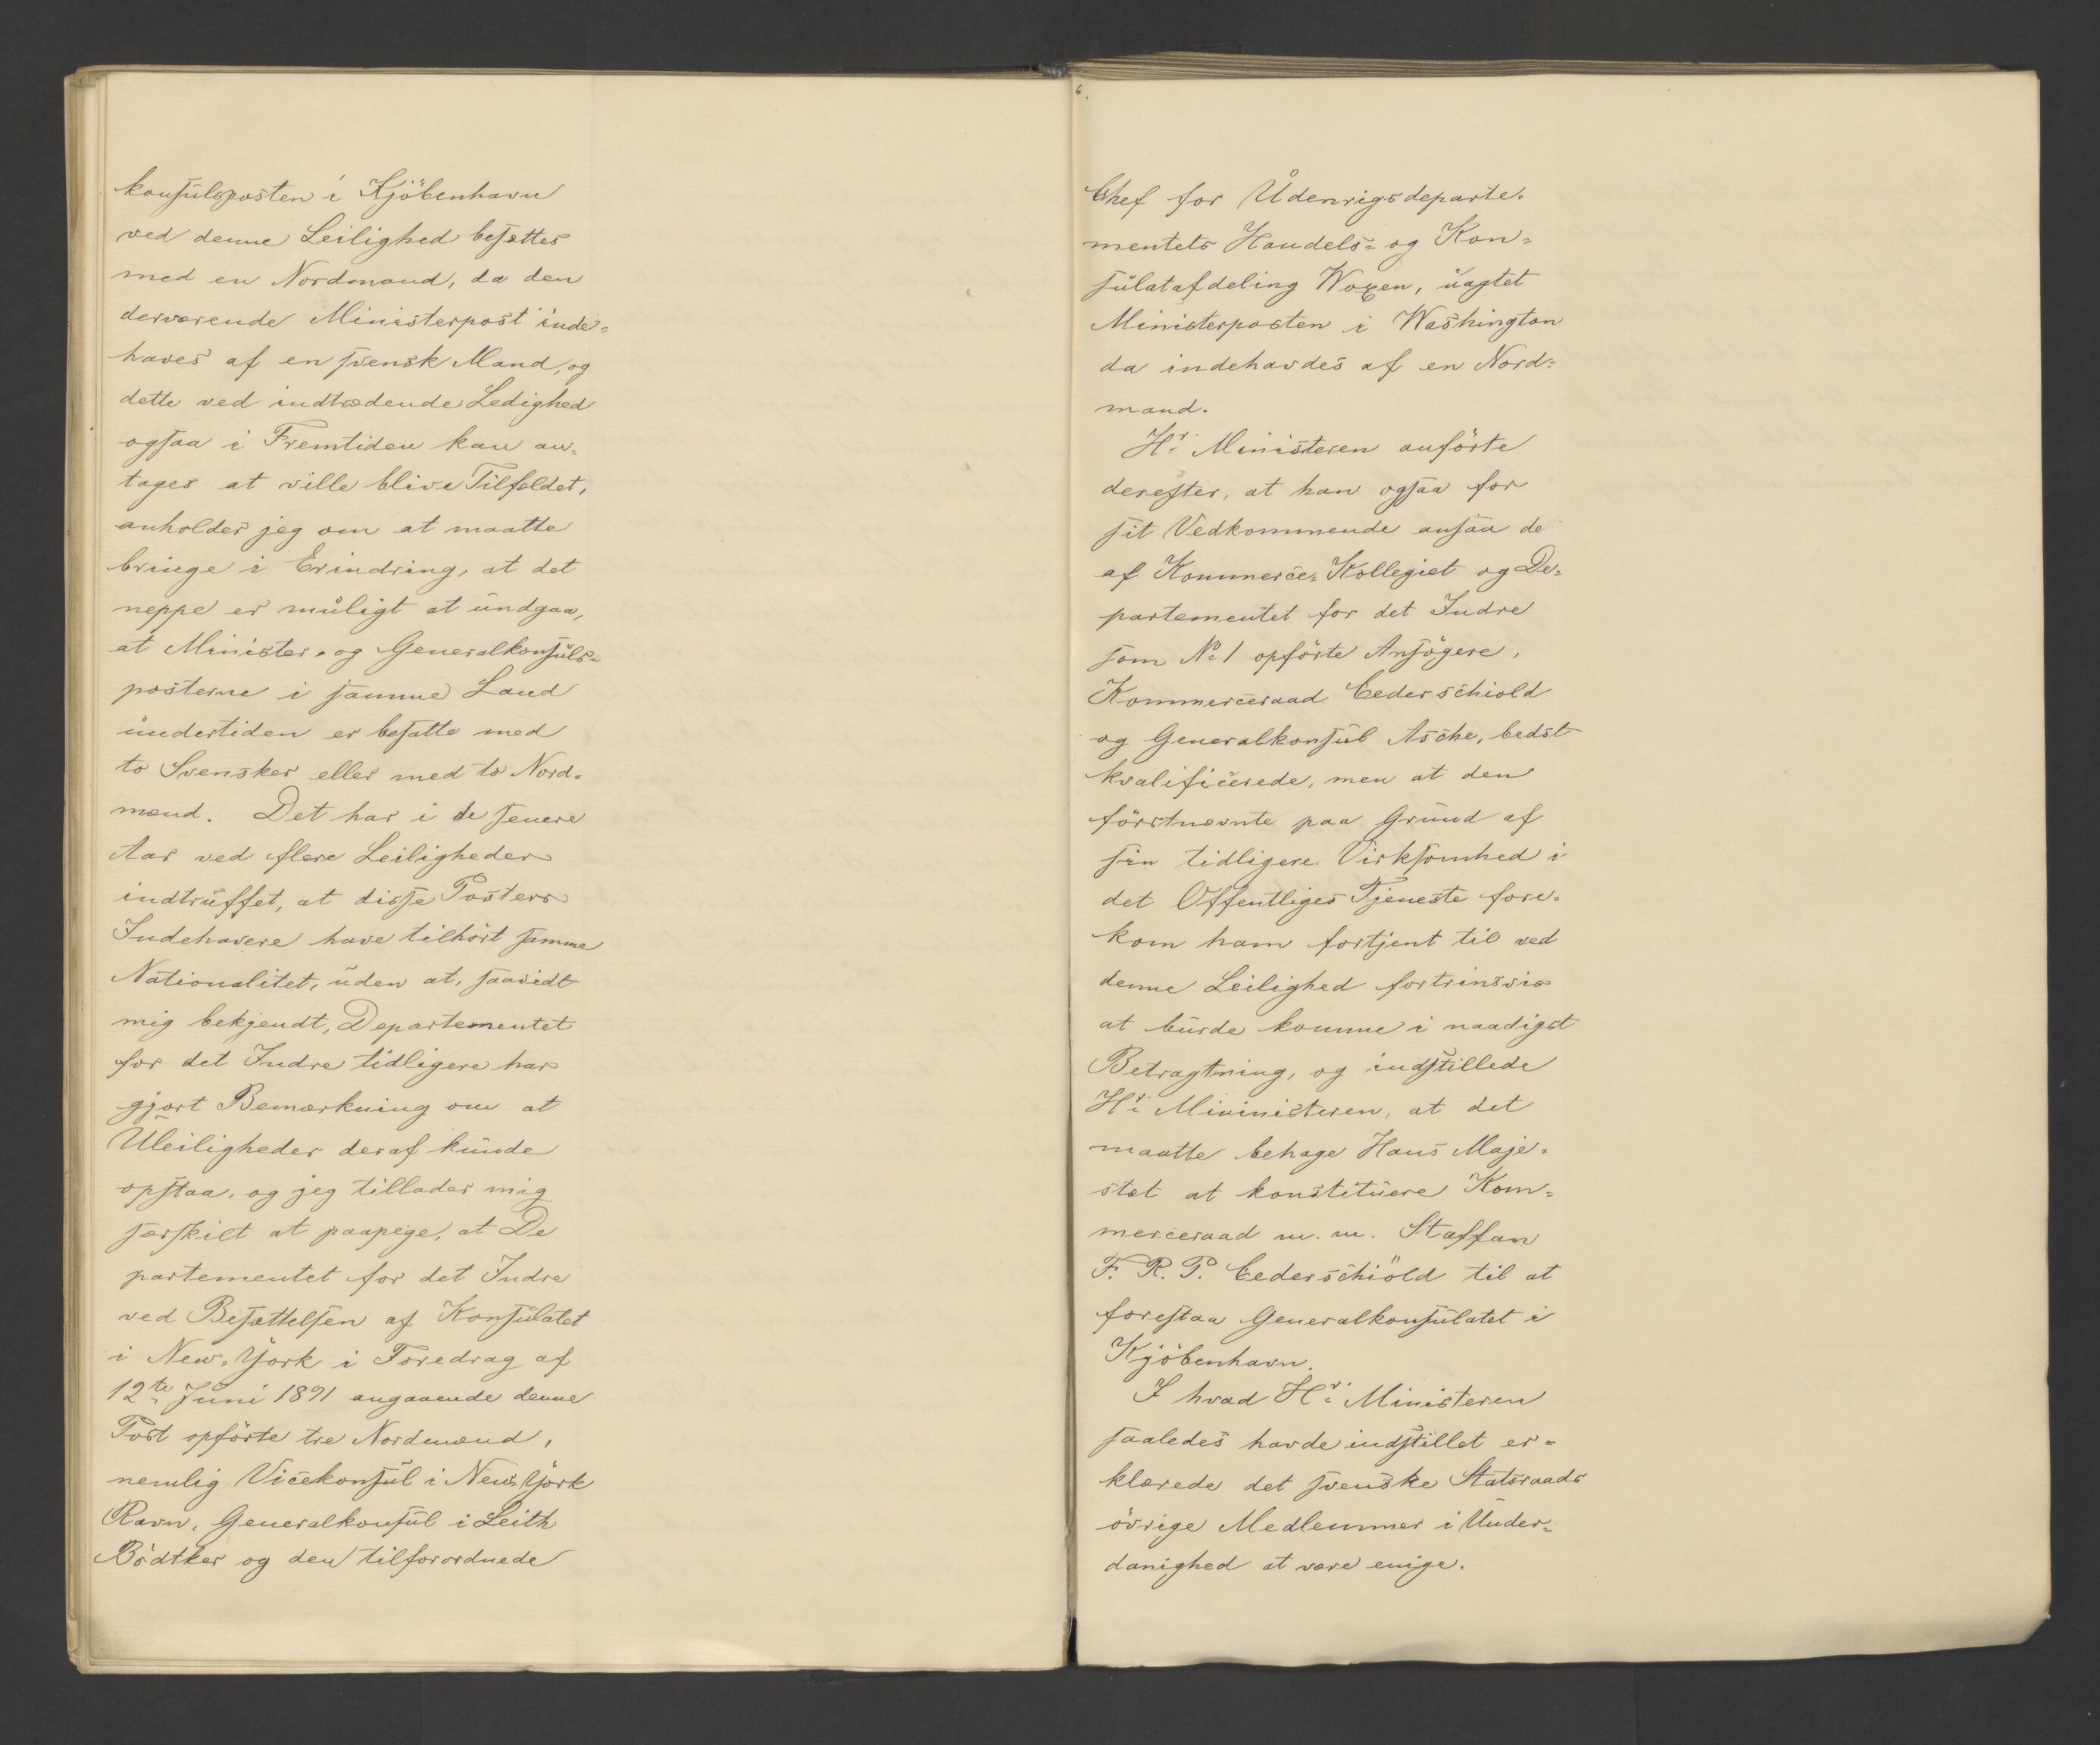 konsulsposten i Kjöbenhavn
ved denne Leilighed besættes
med en Nordmand, da den
derværende Ministerpost inde=
haves af en svensk Mand, og
dette ved indtrædende Ledighed
ogsaa i Fremtiden kan an=
tages at ville blive Tilfældet,
anholder jeg om at maatte
bringe i Erindring, at det
neppe er muligt at undgaa,
at Minister- og Generalkonsuls=
posterne i samme Land
undertiden er besatte med
to Svensker eller med to Nord=
mænd. Det har i de senere
Aar ved flere Leiligheder
indtruffet, at disse Posters
Indehavere have tilhört samme
Nationalitet, uden at, saavidt
mig bekjendt, Departementet
for det Indre tidligere har
gjort Bemærkning om at
Uleiligheder deraf kunde
opstaa, og jeg tillader mig
særskilt at paapege, at De
partementet for det Indre
ved Besættelsen af Konsulatet
i New-York i Foredrag af
12te Juni 1891 angaaende denne
Post opförte tre Nordmænd,
nemlig Vicekonsul i New York
Ravn, Generalkonsul i Leith
Bödtker og den tilforordnede
6.
Chef for Udenrigsdeparte-
mentets Handels= og Kon=
sulatafdeling Woxen, uagtet
Ministerposten i Washington
da indehavdes af en Nord=
mand.
Hr. Ministeren anförte
derefter, at han ogsaa for
sit Vedkommende ansaa de
af Kommerce=Kollegiet og De=
partementet for det Indre
som No 1 opförte Ansögere,
Kommerceraad Cederschiold
og Generalkonsul Asche, bedst
kvalificerede, men at den
förstnævnte paa Grund af
sin tidligere Virksomhed i
det Offentliges Tjeneste fore-
kom ham fortjent til ved
denne Leilighed fortrinsvis
at burde komme i naadigst
Betragtning, og indstillede
Hr. Mininisteren, at det
maatte behage Hans Maje-
stæt at konstituere Kom=
merceraad m. m. Staffan
F. R. P. Cederschiöld til at
forestaa Generalkonsulatet i
Kjöbenhavn.
I hvad Hr. Ministeren
saaledes havde indstillet er=
klærede det svenske Statsraads
övrige Medlemmer i Under=
danighed at være enige.